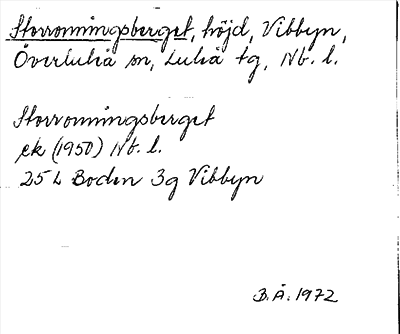 Storronningsberget, höjd, Vibbyn,
Överluleå sn, Luleå tg, Nb. l.
Storronningsberget
ek (1950) Nb. l.
25 L Boden 3g Vibbyn
B.Å. 1972